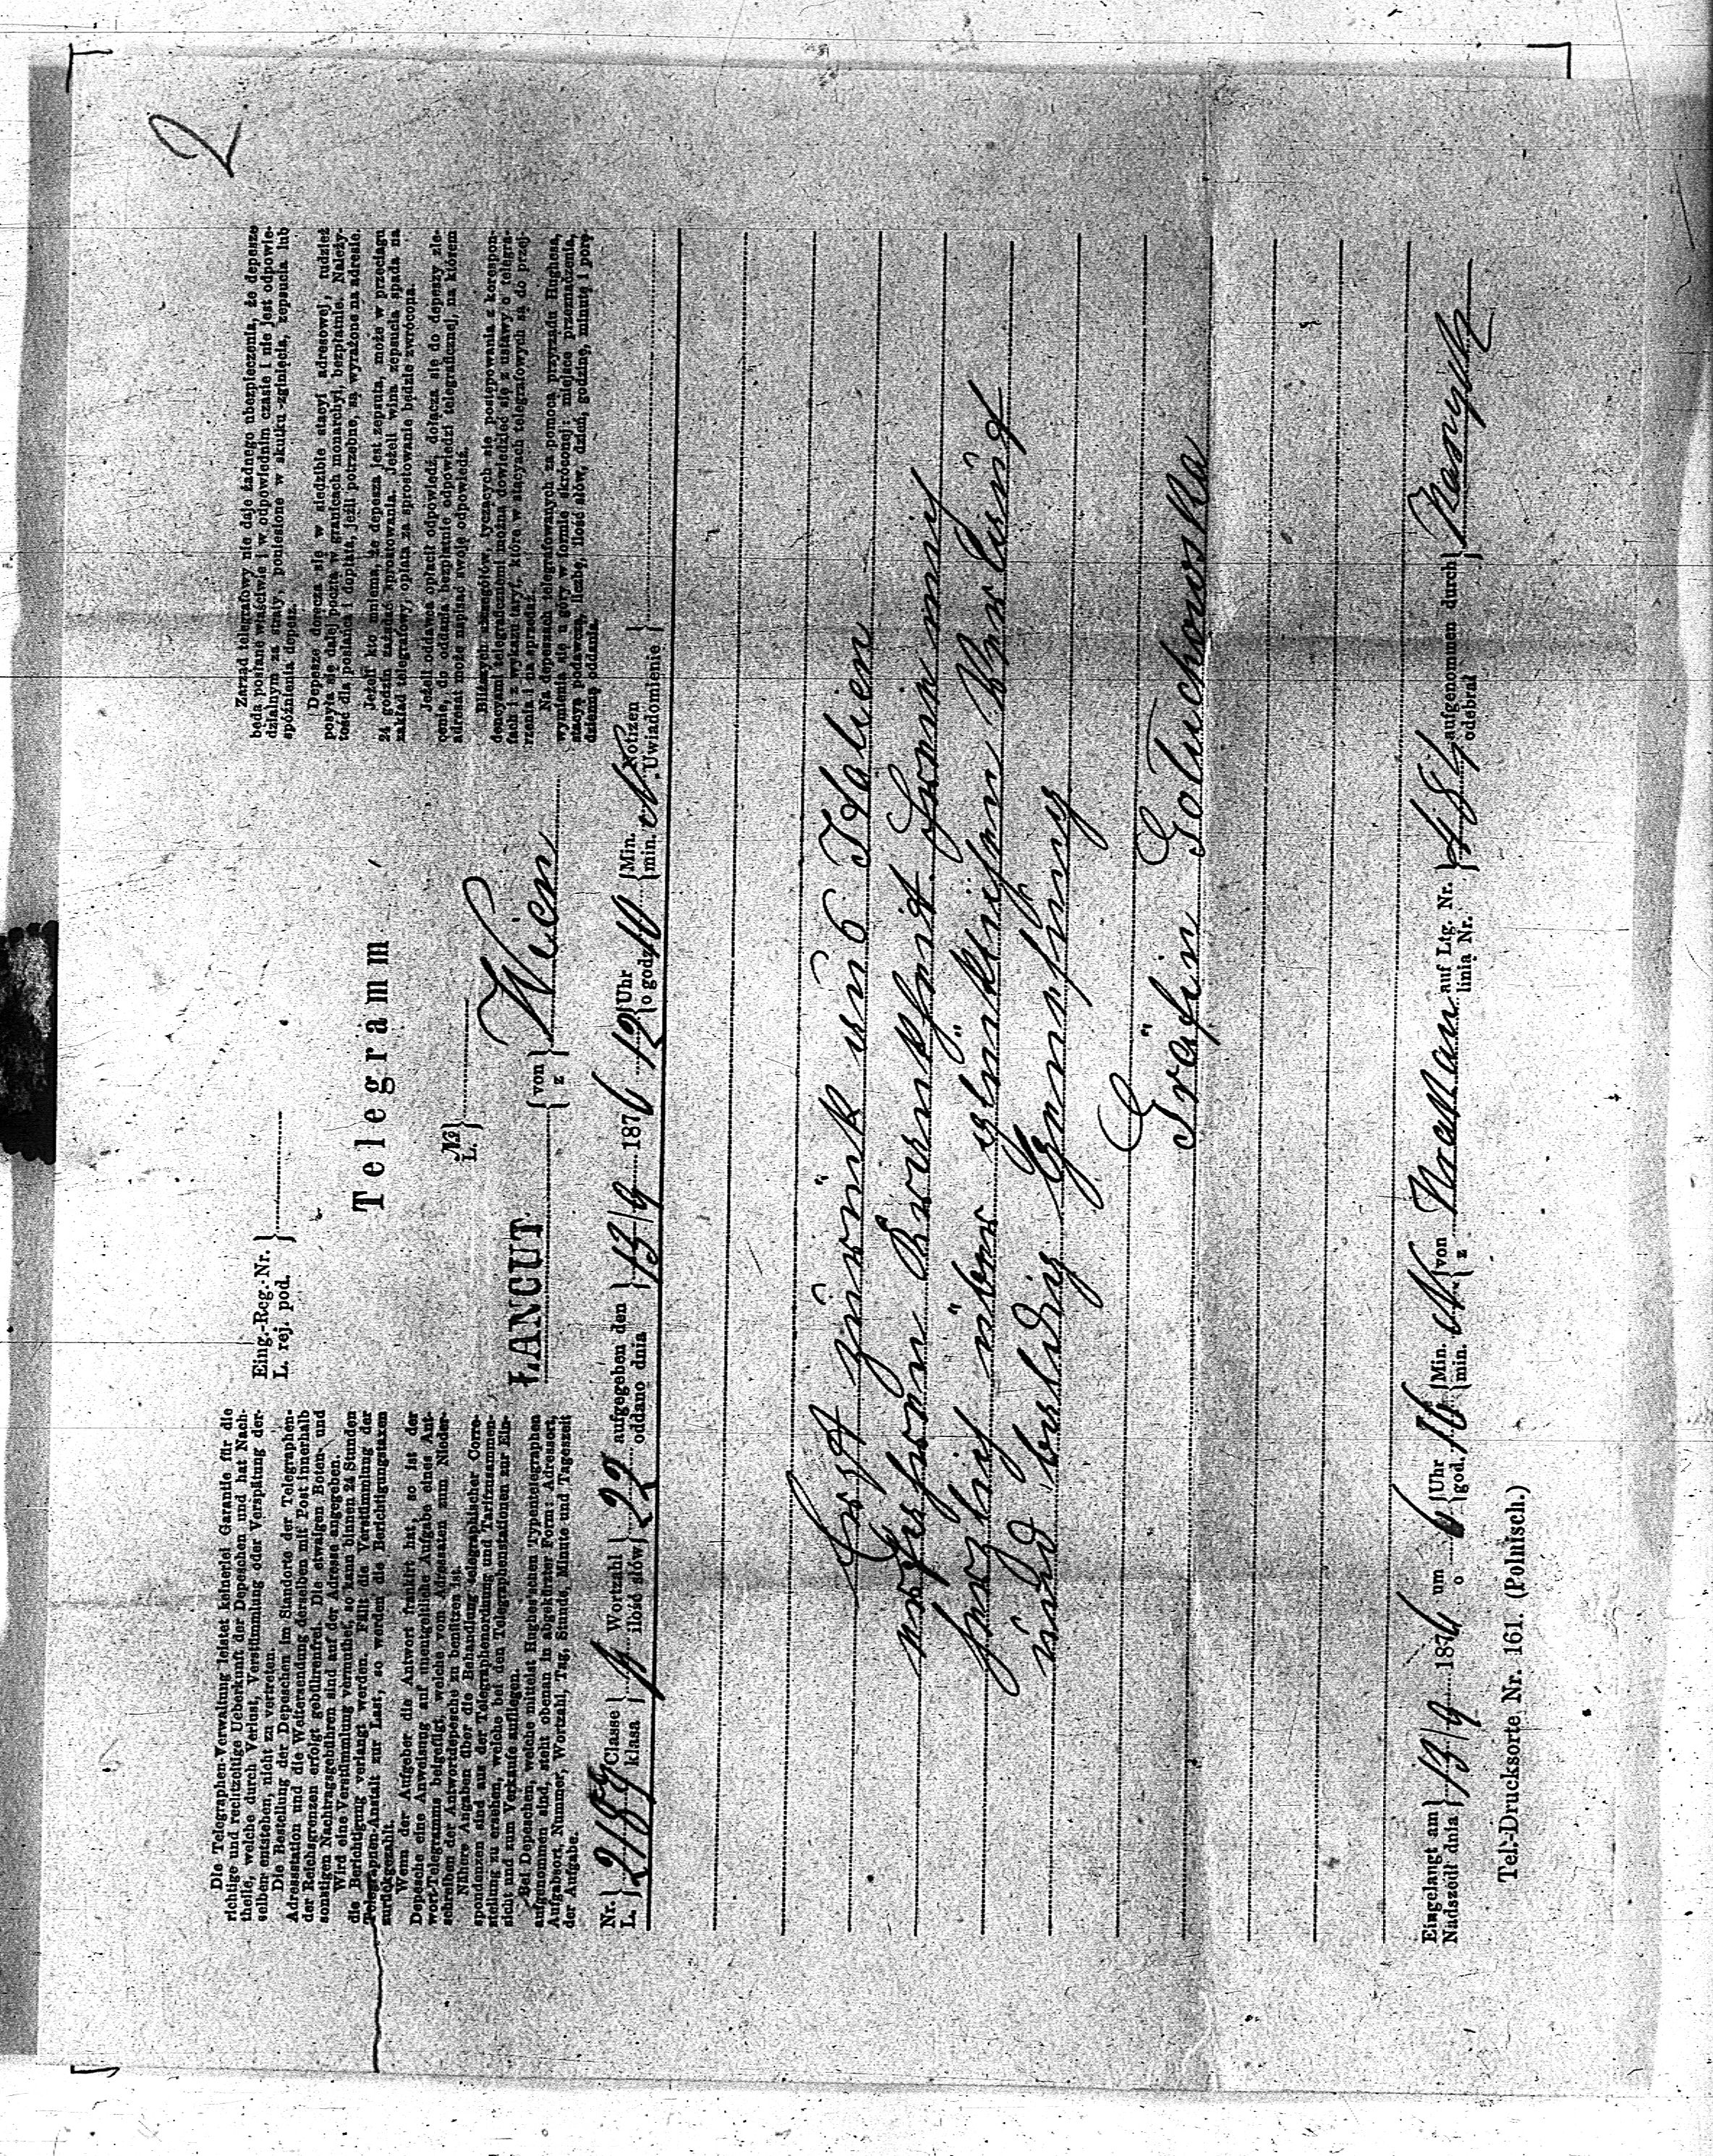 2
Die Telegraphen-Verwaltung leistet keinerlei Garantie für die
richtige und rechtzeitige Ueberkunft der Depeschen und hat Nach-
theile, welche durch Verlust, Verstümmlung oder Verspätung der-
selben entstehen, nicht zu vertreten.
Die Bestellung der Depeschen im Standorte der Telegraphen-
Adressstation und die Weitersendung derselben mit Post innerhalb
der Reichsgrenzen erfolgt gebührenfrei. Die etwaigen Boten- und
sonstigen Nachtragsgebühren sind auf der Adresse angegeben.
Wird eine Verstümmlung vermuthet, so kann binnen 24 Stunden
die Berichtigung verlangt werden. Fällt die Verstümmlung der
Telegraphen-Anstalt zur Last, so werden die Berichtigungstaxen
zurückgezahlt.
Wenn der Aufgeber die Antwort frankirt hat, so ist der
Depesche eine Anweisung auf unentgeltliche Aufgabe eines Ant-
wort-Telegramms beigefügt, welche vom Adressaten zum Nieder-
schreiben der Antwortdepesche zu benützen ist.
Nähere Angaben über die Behandlung telegraphischer Corre-
spondenzen sind aus der Telegraphenordnung und Tarifzusammen-
stellung zu ersehen, welche bei den Telegraphenstationen zur Ein-
sicht und zum Verkaufe aufliegen.
Bei Depeschen, welche mittelst Hughes'schen Typentelegraphen
aufgenommen sind, steht obenan in abgekürzter Form: Adressort,
Aufgabsort, Nummer, Wortzahl, Tag, Stunde, Minute und Tageszeit
der Aufgabe.
Eing.-Reg.-Nr. }
L. rej. pod. }
Telegramm
Nr. }
L. }
ŁANCUT { von } Wien
{ z }
Zarząd telegrafowy nie daje żadnego ubezpieczenia, że depesze
będą posłane właściwie i w odpowiednim czasie i nie jest odpowie-
dzialnym za straty, poniesione w skutku zginięcia, zepsucia lub
spóźnienia depesz.
Depesze doręcza się w siedzibie stacyi adresowej, tudzież
posyła się dalej pocztą w granicach monarchyi, bezpłatnie. Należy-
tość dla posłańca i dopłata, jeżli potrzebne, są wyrażone na adresie.
Jeżeli kto mniema, że depesza jest zepsuta, może w przeciągu
24 godzin zażądać sprostowania. Jeżeli wina zepsucia spada na
zakład telegrafowy, opłata za sprostowanie będzie zwrócona.
Jeżeli oddawca opłacił odpowiedź, dołącza się do depeszy zle-
cenie, do oddania bezpłatnie odpowiedzi telegraficznej, na którem
adresat może napisać swoję odpowiedź.
Bliższych szczegółów, tyczących się postępowania z korespon-
dencyami telegraficznemi można dowiedzieć się z ustawy o telegra-
fach i z wykazu taryf, które w stacyach telegrafowych są do przej-
rzenia i na sprzedaż.
Na depeszach telegrafowanych za pomocą przyrządu Hughesa,
wymienia się u góry w formie skróconej: miejsce przeznaczenia,
stacyą podawczą, liczbę, ilość słów, dzień, godzinę, minutę i porę
dzienną oddania.
Nr. } 2189 Classe } Wortzahl } 22 aufgegeben den } 13/9 1876 12 { Uhr 10 { Min. Notizen }
L. } klasa } ilość słów } oddano dnia } { o god. { min. Uwiadomienie }
Erst zurück aus Italien
erfahren Krankheit. Freue mich
herzlich über glücklichen Verlauf
und baldig Genesung
Gräfin Gołuchowska
Eingelangt am } 13/9 1876 um 6 { Uhr 16 { Min. { von Krakau auf Ltg. Nr. } 484 aufgenommen durch }
Nadszedł dnia } o { god. { min. { z linia Nr. } odebrał }
Tel.-Drucksorte Nr. 161. (Polnisch.)